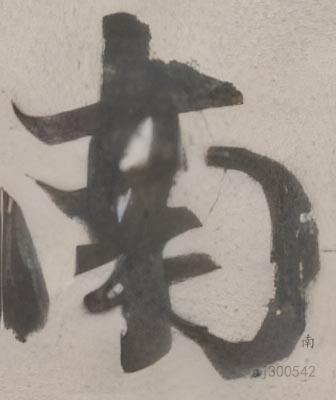 南
南
j300542